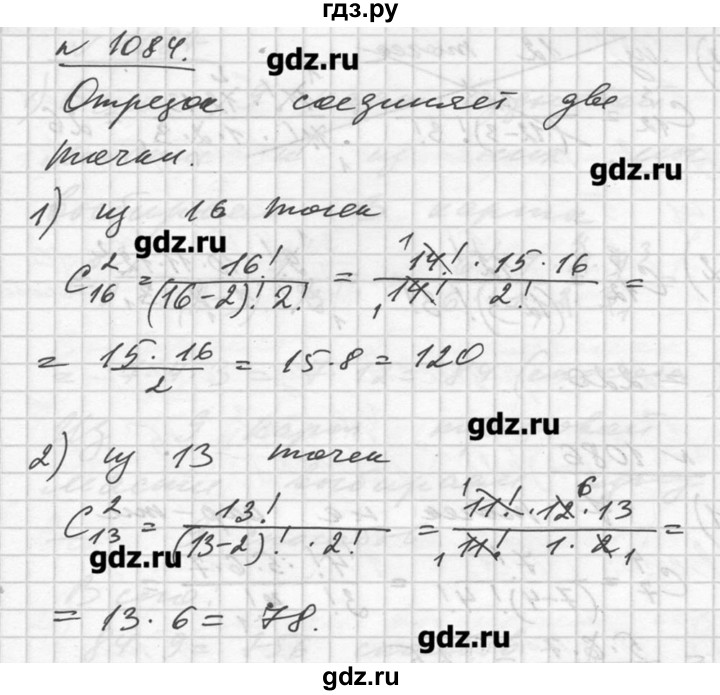 гдз.ру
n 1084.
gdz.ru
Отрезок соединяет две
точки.
gdz.ru
1) из 16 точек
gdz.ru
C₁₆² = 16! / (16-2)! 2! = 14! · 15 · 16 / 14! 2! =
= 15 · 16 / 2 = 15 · 8 = 120
gdz.ru
2) из 13 точек
C₁₃² = 13! / (13-2)! · 2! = 11! · 12 · 13 / 11! 1 · 2 =
gdz.ru
= 13 · 6 = 78.
gdz.ru
гдз.ру